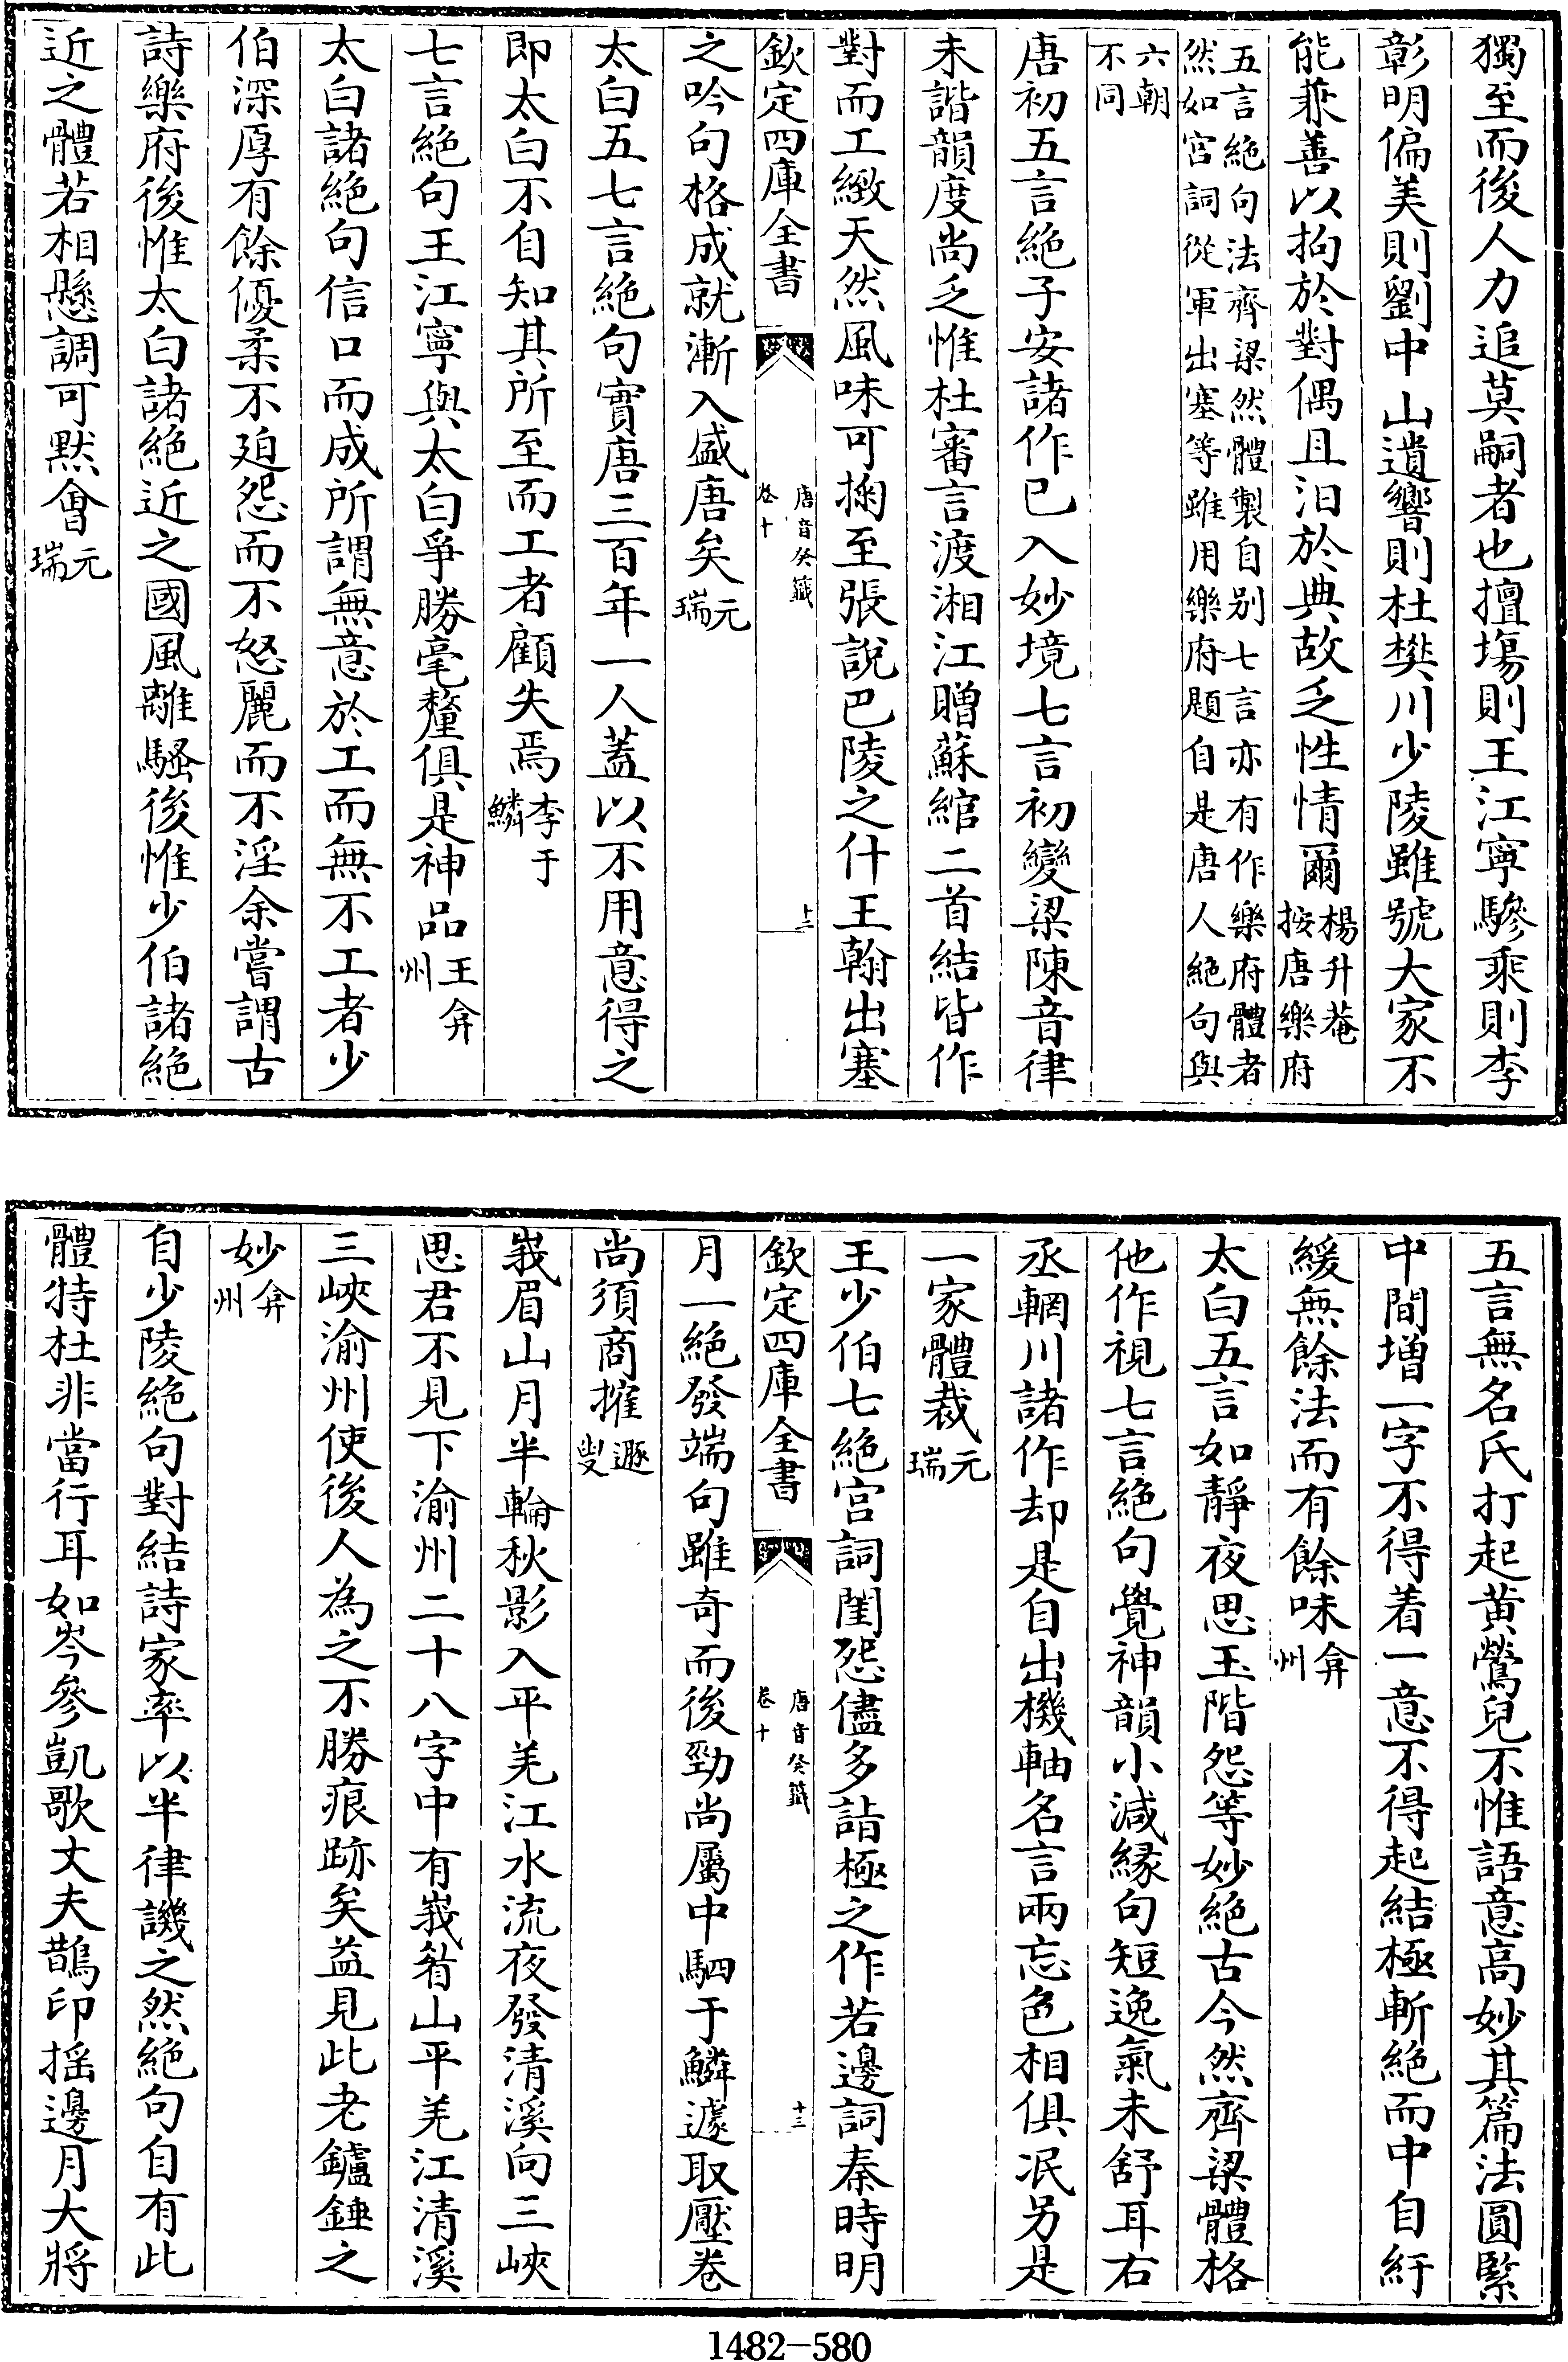 獨至而後人力追莫嗣者也擅場則王江寧驂乘則李
彰明偏美則劉中山遺響則杜樊川少陵雖號大家不
能兼善以拘於對偶且汨於典故乏性情爾楊升菴按唐樂府
五言絶句法齊梁然體製自别七言亦有作樂府體者
然如宫詞從軍出塞等雖用樂府題自是唐人絶句與
六朝
不同
唐初五言絶子安諸作已入妙境七言初變梁陳音律
未諧韻度尚乏惟杜審言渡湘江贈蘇綰二首結皆作
對而工緻天然風味可掬至張説巴陵之什王翰出塞
欽定四庫全書
唐音癸籖
卷十
十二
之吟句格成就漸入盛唐矣元瑞
太白五七言絶句實唐三百年一人葢以不用意得之
即太白不自知其所至而工者顧失焉李于鱗
七言絶句王江寧與太白爭勝毫釐俱是神品王弇州
太白諸絶句信口而成所謂無意於工而無不工者少
伯深厚有餘優柔不廹怨而不怒麗而不淫余嘗謂古
詩樂府後惟太白諸絶近之國風離騷後惟少伯諸絶
近之體若相懸調可默會元瑞
五言無名氏打起黄鶯兒不惟語意高妙其篇法圓緊
中間増一字不得着一意不得起結極斬絶而中自紆
緩無餘法而有餘味弇州
太白五言如靜夜思玉階怨等妙絶古今然齊梁體格
他作視七言絶句覺神韻小減縁句短逸氣未舒耳右
丞輞川諸作却是自出機軸名言兩忘色相俱泯另是
一家體裁元瑞
王少伯七絶宫詞閨怨儘多詣極之作若邊詞秦時明
欽定四庫全書
唐音癸籖
卷十
十三
月一絶發端句雖奇而後勁尚屬中駟于鱗遽取壓卷
尚須商搉遯叟
峩眉山月半輪秋影入平羌江水流夜發清溪向三峽
思君不見下渝州二十八字中有峩眉山平羌江清溪
三峽渝州使後人為之不勝痕跡矣益見此老鑪錘之
妙弇州
自少陵絶句對結詩家率以半律譏之然絶句自有此
體特杜非當行耳如岑參凱歌丈夫鵲印摇邊月大將
1482-580